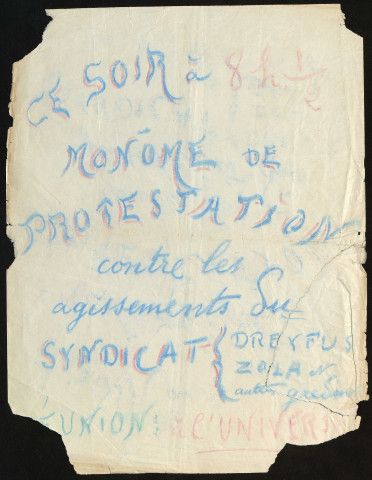 CE SOIR à 8 h 1/2
MONÔME DE
PROTESTATION
contre les
agissements du
SYNDICAT { DREYFUS
ZOLA
autres gredins
RÉUNION: à l'UNIVERSI